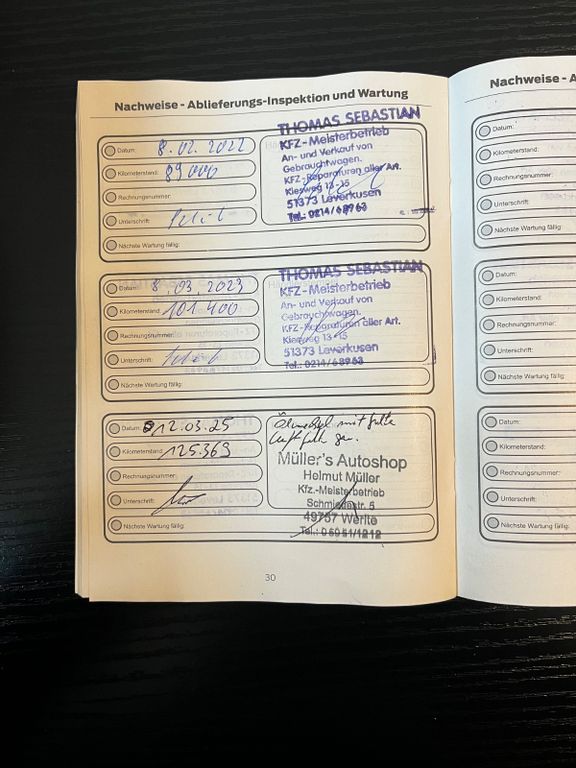 Nachweise - Ablieferungs-Inspektion und Wartung
Datum: 8.02.2022
Kilometerstand: 89000
Rechnungsnummer:
Unterschrift:
Nächste Wartung fällig:
THOMAS SEBASTIAN
KFZ-Meisterbetrieb
An- und Verkauf von
Gebrauchtwagen.
KFZ-Reparaturen aller Art.
Kiesweg 13-15
51373 Leverkusen
Tel.: 0214/68963
Datum: 8.03.2023
Kilometerstand: 101.400
Rechnungsnummer:
Unterschrift:
Nächste Wartung fällig:
THOMAS SEBASTIAN
KFZ-Meisterbetrieb
An- und Verkauf von
Gebrauchtwagen.
KFZ-Reparaturen aller Art.
Kiesweg 13-15
51373 Leverkusen
Tel.: 0214/68963
Datum: 12.03.25
Kilometerstand: 125.369
Rechnungsnummer:
Unterschrift:
Nächste Wartung fällig:
Ölwechsel mit Filter
Luftfilter
Müller's Autoshop
Helmut Müller
Kfz.-Meisterbetrieb
Schmiedestr. 5
49757 Werlte
Tel.: 05951/1212
30
Nachweise - A
Datum:
Kilometerstand:
Rechnungsnummer:
Unterschrift:
Nächste Wartung fällig:
Datum:
Kilometerstand:
Rechnungsnummer:
Unterschrift:
Nächste Wartung fällig:
Datum:
Kilometerstand:
Rechnungsnummer:
Unterschrift:
Nächste Wartung fällig: